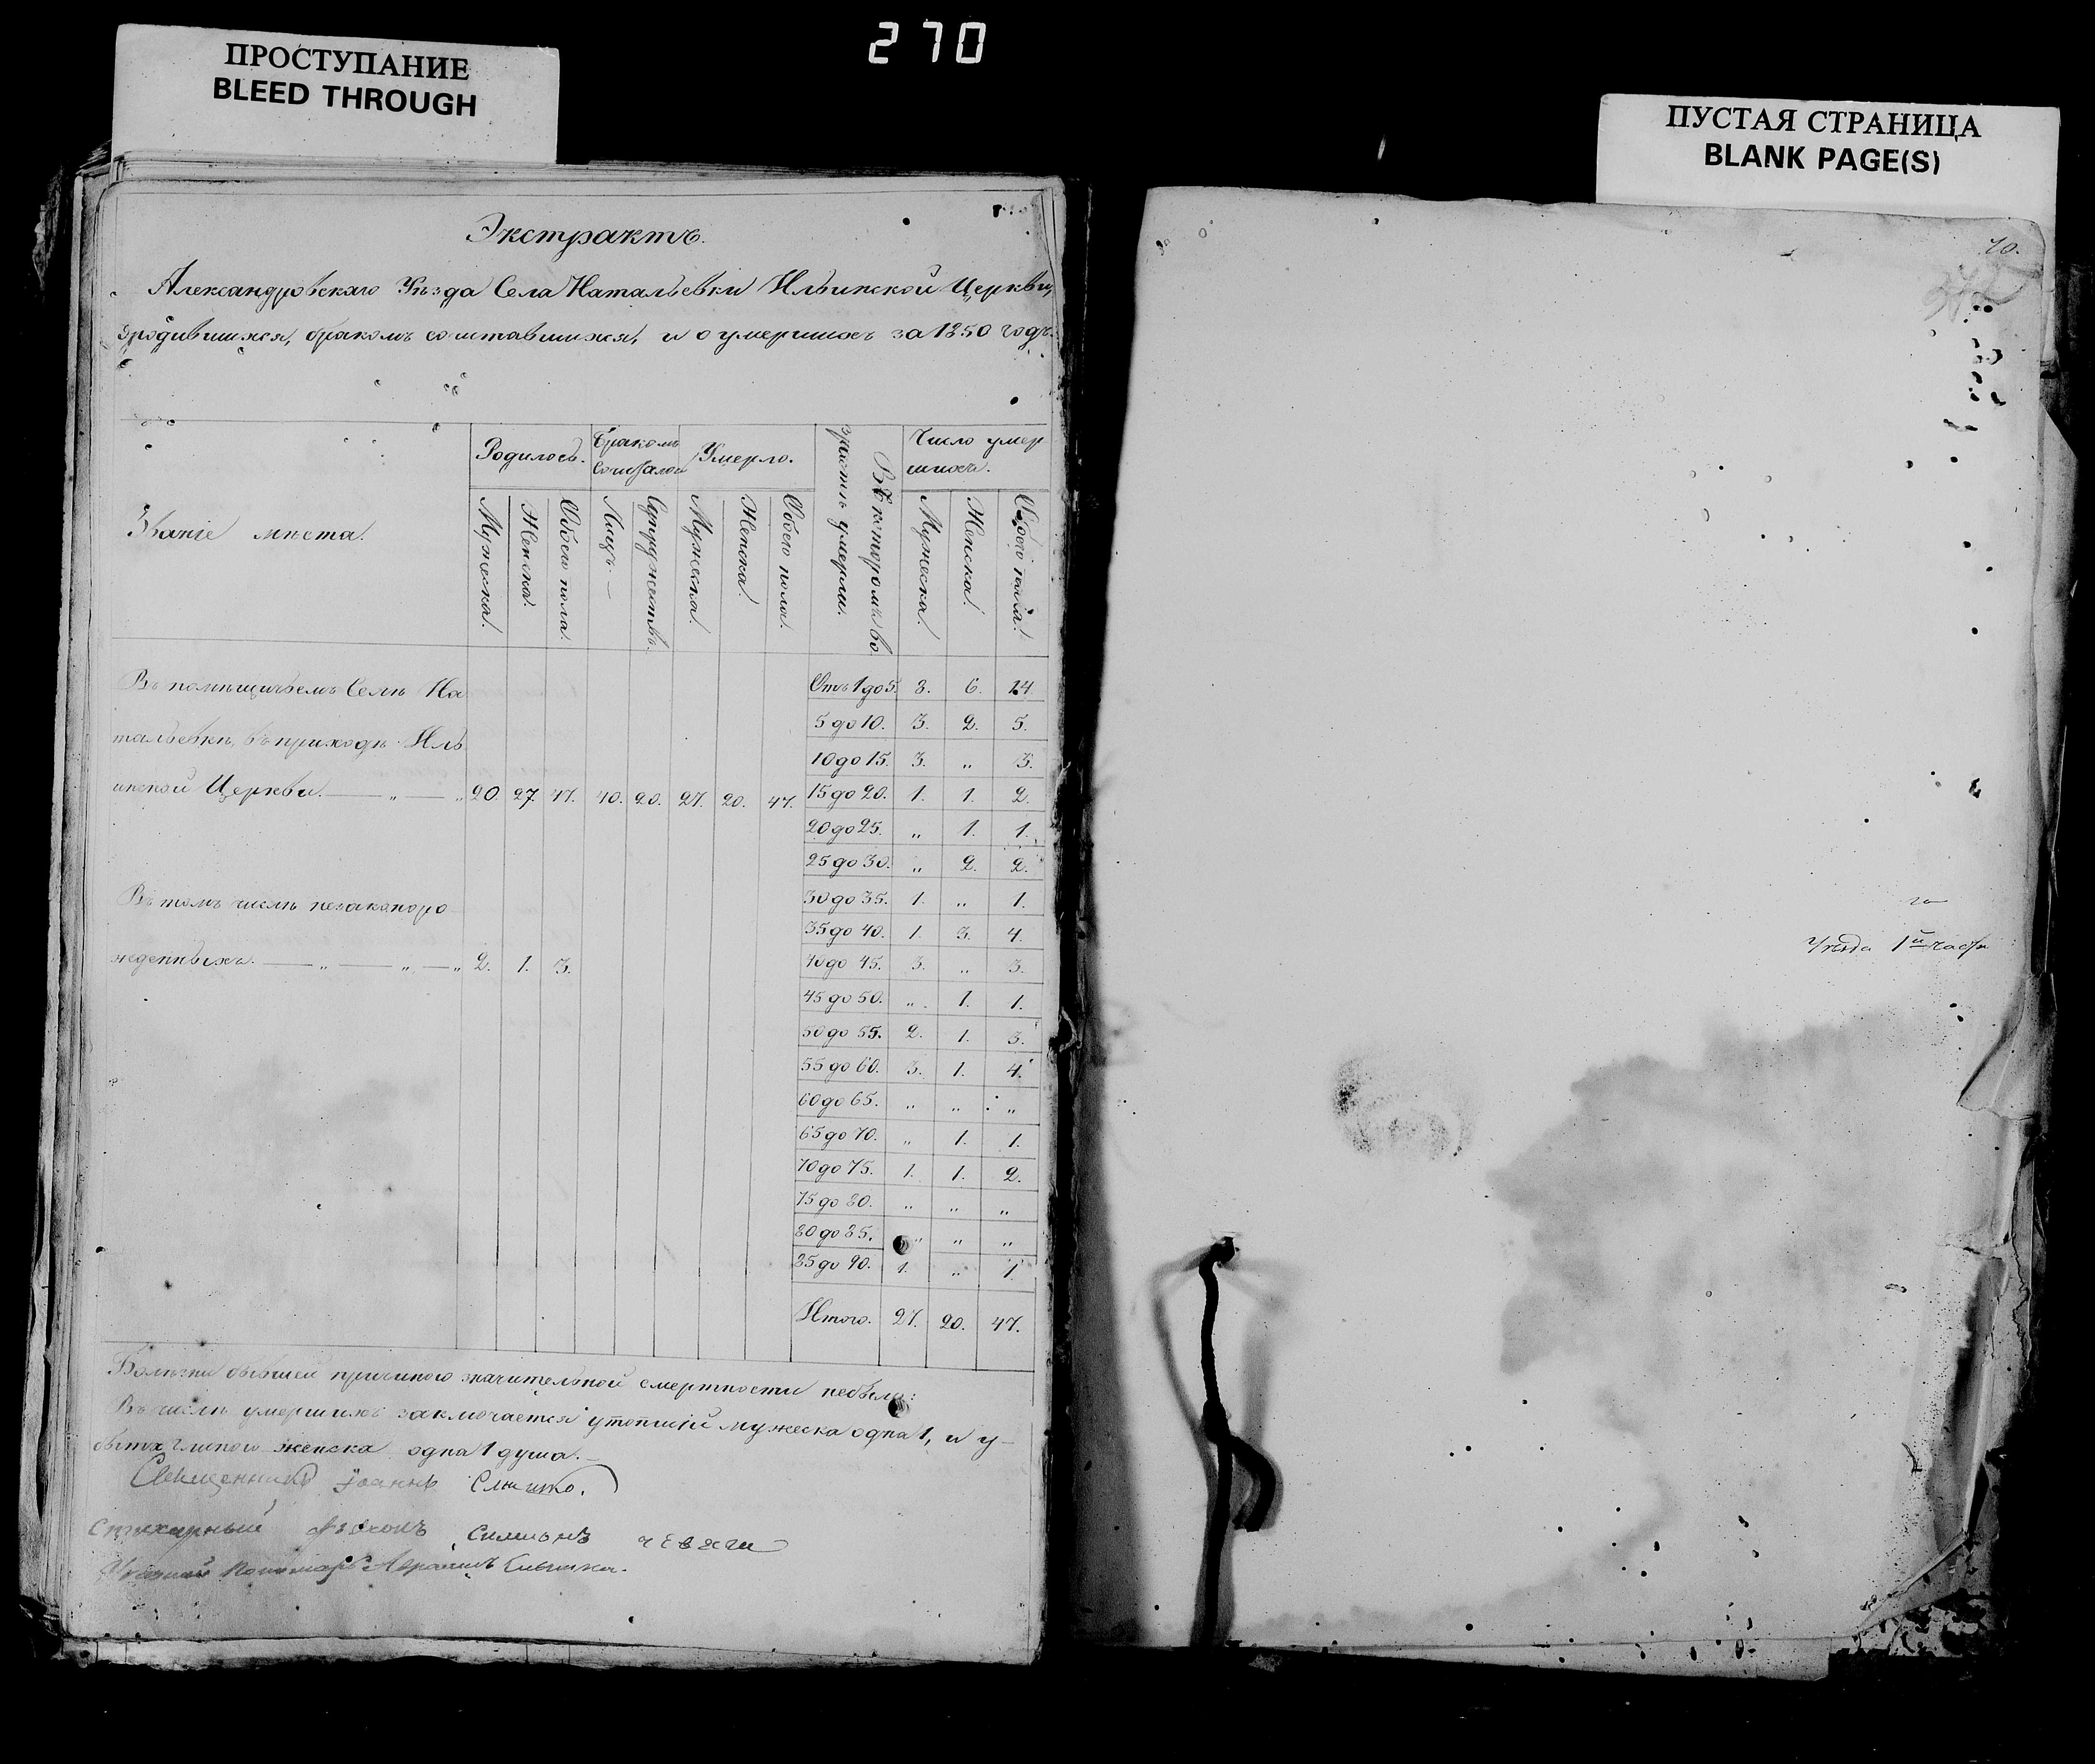 270
ПРОСТУПАНИЕ
BLEED THROUGH
ПУСТАЯ СТРАНИЦА
BLANK PAGE(S)
Экстрактъ.
Александровскаго Уѣзда Села Натальевки Ильинской Церкви,
ородившихся, бракомъ сочитавшихся, и о умершихъ за 1850 годъ.
Званіе мѣста.
Родилось. Бракомъ Умерло. Число умер
шихъ.
Мужеска. Женска. Обоего пола. Лицъ — Супружествъ. Мужеска. Женска. Обоего пола. Въ которомъ во
зрастѣ умерли. Мужеска. Женска. Обоего пола.
Въ помѣщичьемъ Селѣ На
тальевкѣ, въ приходѣ Иль
инской Церкви. — „ — „ 20. 27. 47. 40. 20. 27. 20. 47.
Въ томъ числѣ незаконоро
жденныхъ. — „ — „ — „ 2. 1. 3.
Отъ 1 до 5. 8. 6. 14
5 до 10. 3. 2. 5.
10 до 15. 3. „ 3.
15 до 20. 1. 1. 2.
20 до 25. „ 1. 1.
25 до 30. „ 2. 2.
30 до 35. 1. „ 1.
35 до 40. 1. 3. 4.
40 до 45. 3. „ 3.
45 до 50. „ 1. 1.
50 до 55. 2. 1. 3.
55 до 60. 3. 1. 4.
60 до 65. „ „ „
65 до 70. „ 1. 1.
70 до 75. 1. 1. 2.
75 до 80. „ „ „
80 до 85. „ „ „
85 до 90. 1. „ 1.
Итого. 27. 20. 47.
Болѣзни бывшей причиною значительной смертности небыло:
Въ числѣ умершихъ заключается утопшій мужеска одна 1, и у-
битая глиною женска одна 1 душа.
Священникъ Іоаннъ
Стихарный Дьячокъ Симеонъ
Пономарь
70.
Уѣзда 1й части